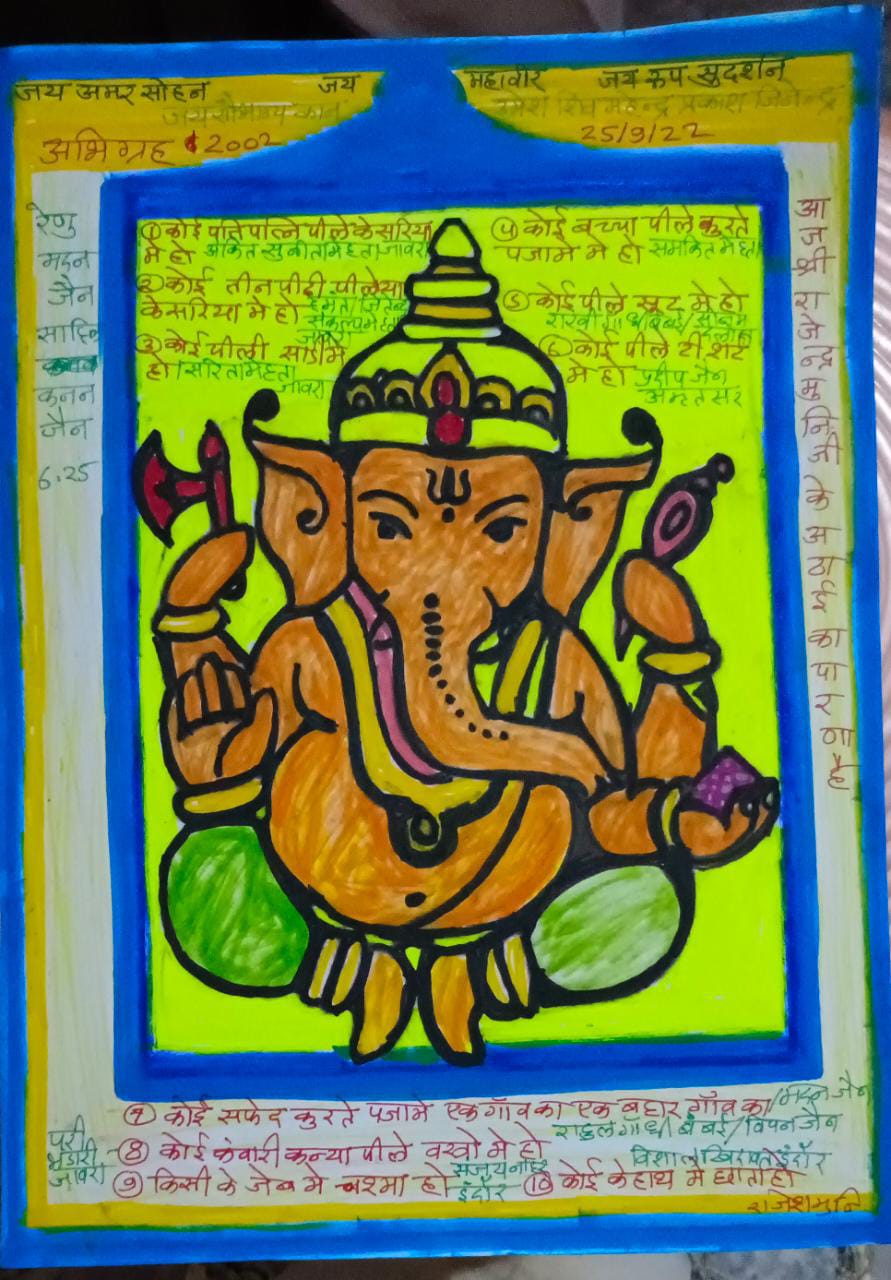 जय अमर सोहन जय महावीर जय रूप सुदर्शन
जय सौभाग्य
महेन्द्र प्रकाश जिनेन्द्र
अभिग्रह 2002
25/9/22
रेणु
मदन
जैन
कनन
जैन
6.25
① कोई पति पत्नि पीले केसरिया
मे हो अंकित सुनीता मेहता जावरा
② कोई तीन पीढी पीले या
केसरिया मे हो
③ कोई पीली साडी मे
हो/सरिता मेहता
जावरा
④ कोई बच्चा पीले कुरते
पजामे मे हो समकित मेहता
⑤ कोई पीले सूट मे हो
⑥ कोई पीले टी शर्ट
मे हो प्रदीप जैन
अमृतसर
आज श्री राजेन्द्र मुनि जी के अठाई का पारणा है
⑦ कोई सफेद कुरते पजामे एक गाँव का एक बहार गाँव का/मदन जैन
राहुल गाधी बंबई/विपन जैन
परी
भंडारी
जावरा
⑧ कोई कंवारी कन्या पीले वस्त्रो मे हो
विशाल इंदौर
⑨ किसी के जेब मे चश्मा हो
इंदौर
⑩ कोई के हाथ मे छाता हो
राजेश मुनि